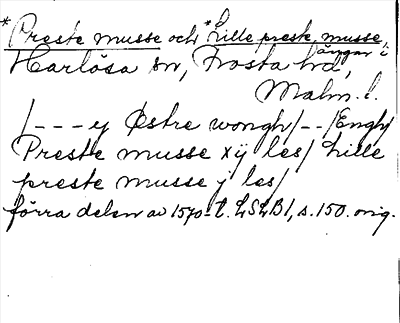 *Preste musse och *Lille preste musse,
ängar i
Harlösa sn, Frosta hd,
Malm. l.
/---y Østre wongh/--/Engh/
Preste musse xÿ les/ Lille
preste musse j les/
förra delen av 1570-t. LSLB1, s. 150. orig.